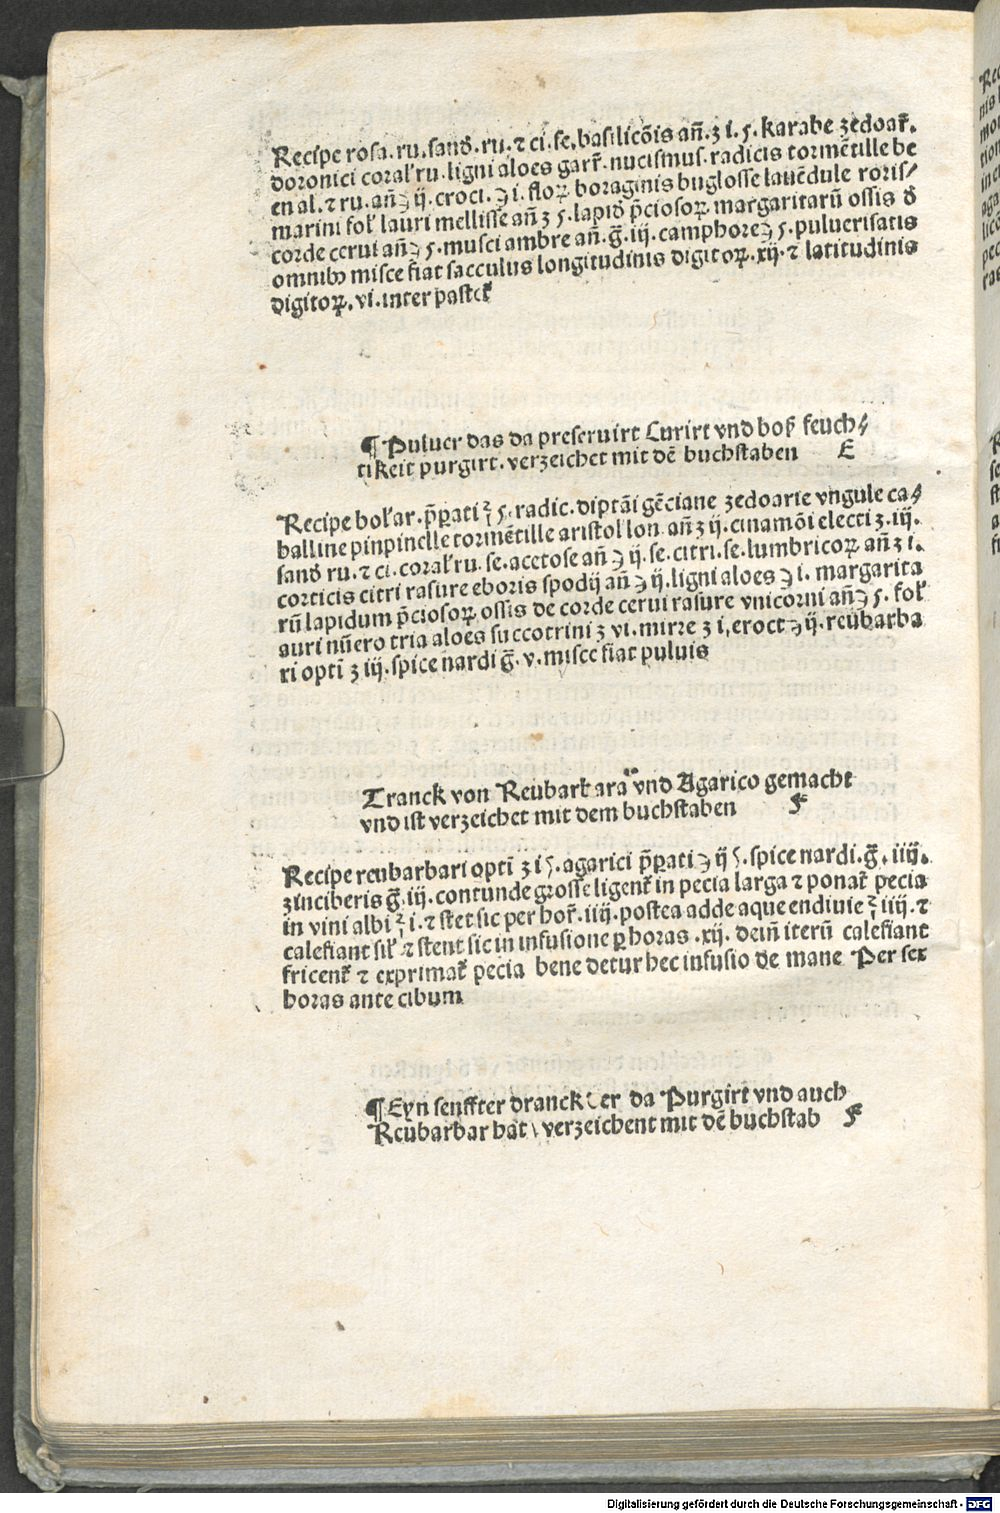 Recipe rosa. ru. sand̄. ru. ⁊ ci. se. basilicōis añ. ʒ i. ς. karabe zedoar̄.
doronici coral' ru. ligni aloes gar̄. nucismus. radicis tormētille be
en al. ⁊ ru. añ ℈ ij. croci. ℈ i. floꝝ boraginis buglosse lauēdule roris/
marini fol' lauri mellisse añ ʒ ς. lapid̄ p̄ciosoꝝ. margaritarū ossis d̄
corde cerui añ ℈ ς. musci ambre añ. g̅. iij. camphore ℈ ς. puluerisatis
omnibꝯ misce fiat sacculus longitudinis digitoꝝ. xij. ⁊ latitudinis
digitoꝝ. vi. inter pastck̄
¶ Puluer das da preseruirt Curirt vnd boß feuch/
tikeit purgirt. verzeichet mit dē buchstaben E
Recipe bol'ar. p̄parati ℥ ς. radic. diptāi gēciane zedoarie vngule ca/
balline pinpinelle tormētille aristol' lon añ ʒ ij. cinamōi electi ʒ. iij.
sand̄ ru. ⁊ ci. coral' ru. se. acetose añ ℈ ij. se. citri. se. lumbricoꝝ añ ʒ i.
corticis citri rasure eboris spodij añ ℈ ij. ligni aloes ℈ i. margarita
rū lapidum p̄ciosoꝝ ossis de corde cerui rasure vnicorni añ ℈ ς. fol'
auri nūero tria aloes succotrini ʒ vi. mirre ʒ i, eroct ℈ ij. reubarba
ri optī ʒ iij. spice nardi g̅. v. misce fiat puluis
Tranck von Reubarbara vnd Agarico gemacht
vnd ist verzeichet mit dem buchstaben F
Recipe reubarbari optī ʒ i ς. agarici p̄parati ℈ ij ς. spice nardi. g̅. iiij.
zinciberis g̅. iij. contunde grosse ligent̄ in pecia larga ⁊ ponat̄ pecia
in vini albi ℥ i. ⁊ stet sic per hor̄. iiij. postea adde aque endiuie ℥ iiij. ⁊
calefiant sil' ⁊ stent sic in infusione ꝑ horas .xij. dein̄ iterū calefiant
fricent̄ ⁊ exprimat̄ pecia bene detur hec infusio de mane Per sex
horas ante cibum
¶ Eyn senffter dranck der da Purgirt vnd auch
Reubarbar hat verzeichent mit dē buchstab F
Digitalisierung gefördert durch die Deutsche Forschungsgemeinschaft - DFG